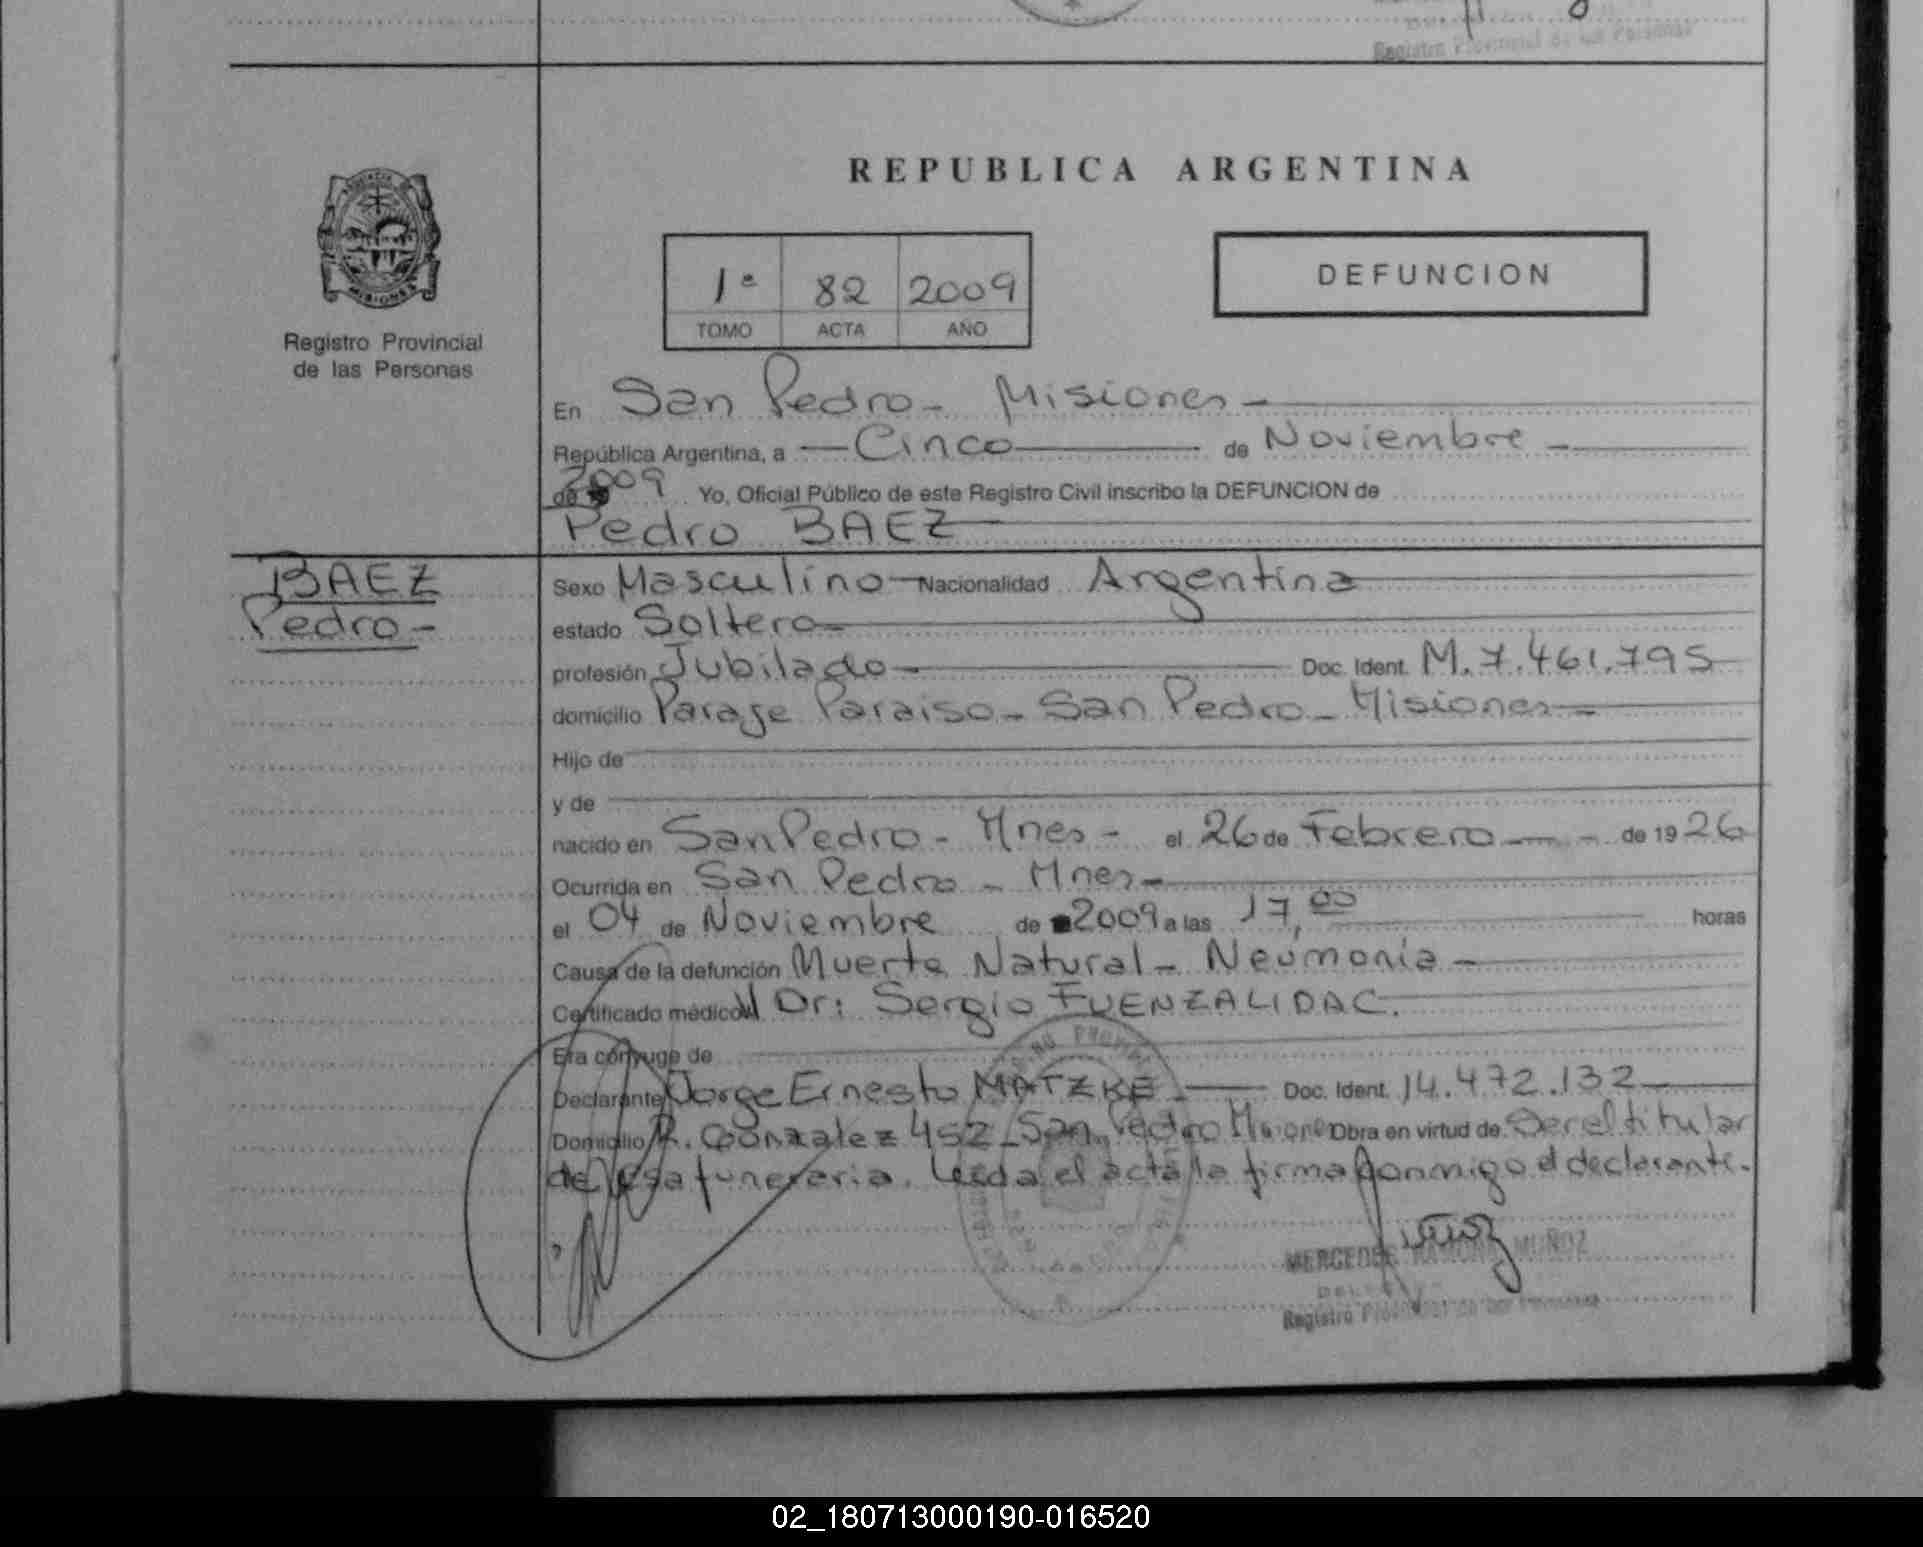 Registro Provincial de las Personas
REPUBLICA ARGENTINA
1ª 82 2009
TOMO ACTA AÑO
DEFUNCION
MISIONES
Registro Provincial
de las Personas
En San Pedro - Misiones -
República Argentina, a - Cinco de Noviembre -
de 2009 Yo, Oficial Público de este Registro Civil inscribo la DEFUNCION de
Pedro BAEZ
BAEZ
Pedro -
Sexo Masculino Nacionalidad Argentina
estado Soltero
profesión Jubilado Doc. Ident. M.7.461.795
domicilio Paraje Paraiso - San Pedro - Misiones -
Hijo de
y de
nacido en San Pedro - Mnes - el 26 de Febrero - de 19 26
Ocurrida en San Pedro - Mnes -
el 04 de Noviembre de 2009 a las 17,00 horas
Causa de la defunción Muerte Natural - Neumonía -
Certificado médico Dr: Sergio FUENZALIDA C.
Era cónyuge de
Declarante Jorge Ernesto MATZKE - Doc. Ident. 14.472.132
Domicilio R. Gonzalez 452 - San Pedro Obra en virtud de Ser el titular
de esa funeraria. Leída el acta la firma conmigo el declarante.
MERCEDES RAMONA MUÑOZ
Registro Provincial de las Personas
02_180713000190-016520